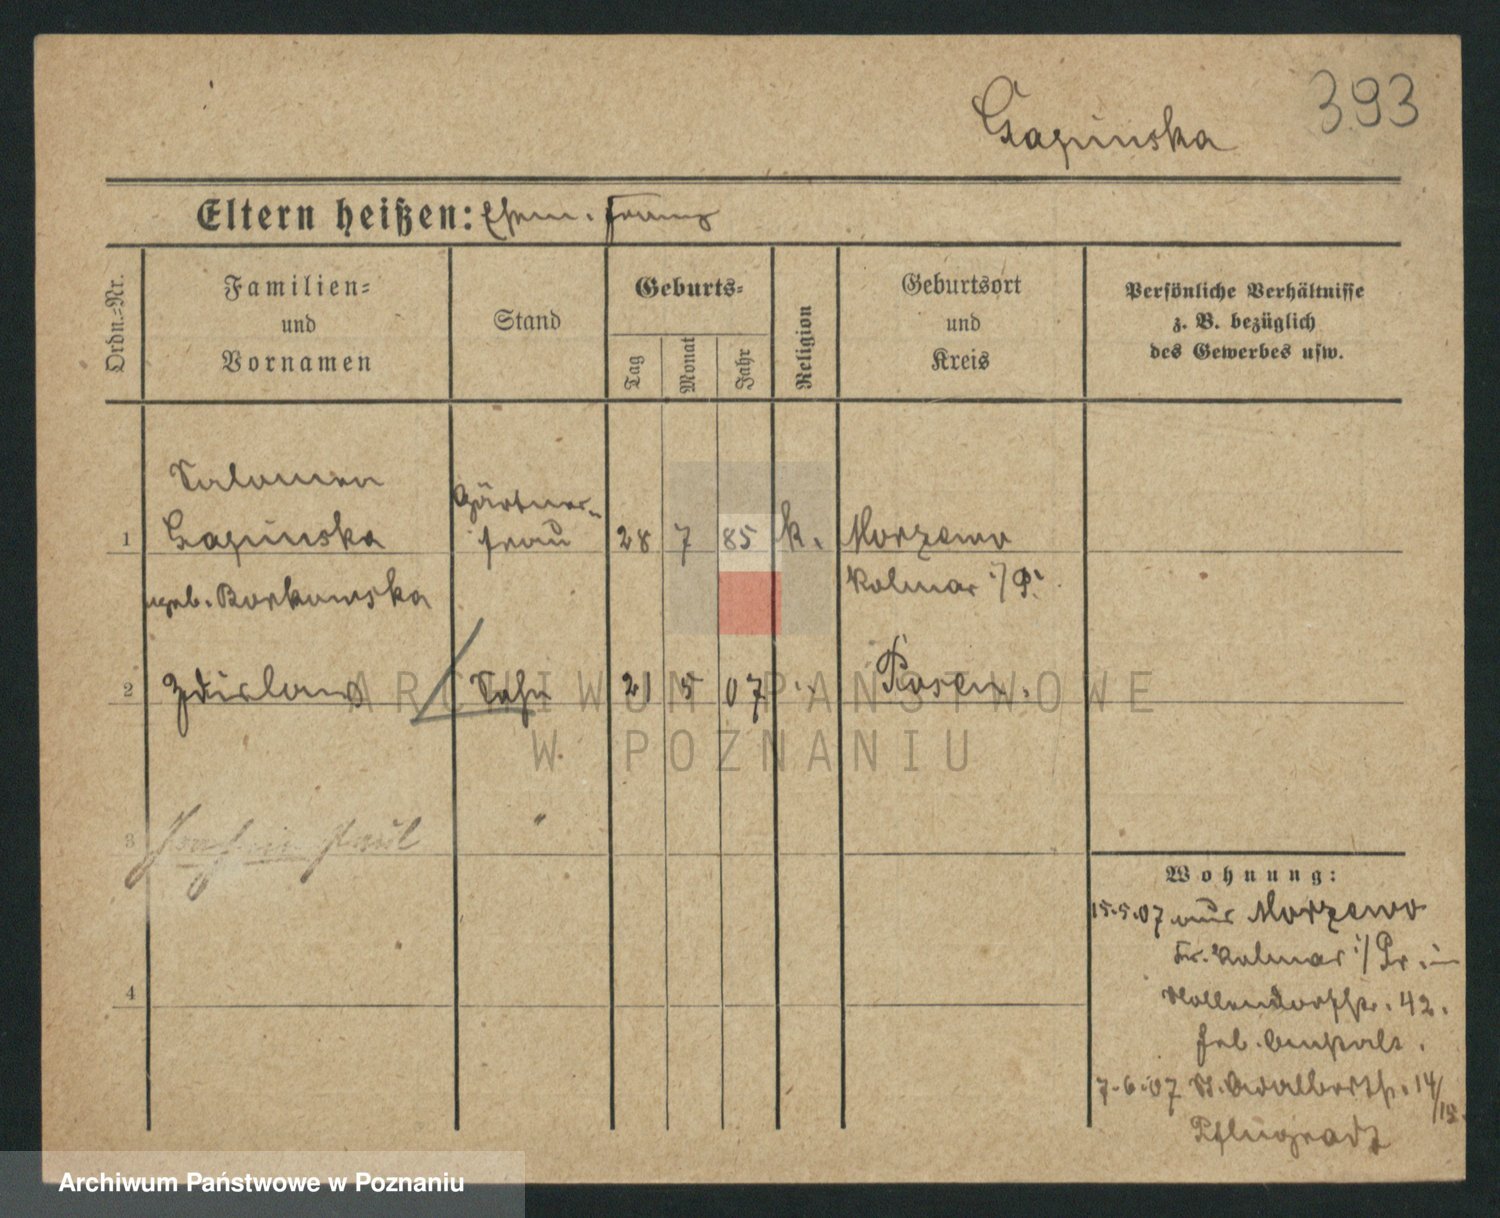 393
Gapinska
Eltern heißen: Ehem. Franz
Ordn.-Nr.
Familien-
und
Vornamen
Stand
Geburts-
Tag
Monat
Jahr
Religion
Geburtsort
und
Kreis
Persönliche Verhältnisse
z. B. bezüglich
des Gewerbes usw.
Salomea
Gärtner-
1 Gapinska frau 28 7 85 k. Morzewo
geb. Borkowska Kolmar i/P.
2 Zdislaus Sohn 21 5 07 Posen.
3 Paul "
4
Wohnung:
15.5.07 aus Morzewo
Kr. Kolmar i/Pr. in
Nollendorfstr. 42.
Heb. Anstalt.
7.6.07 St. Adalbertstr. 14/15.
Pflugradt
ARCHIWUM PAŃSTWOWE
W POZNANIU
Archiwum Państwowe w Poznaniu